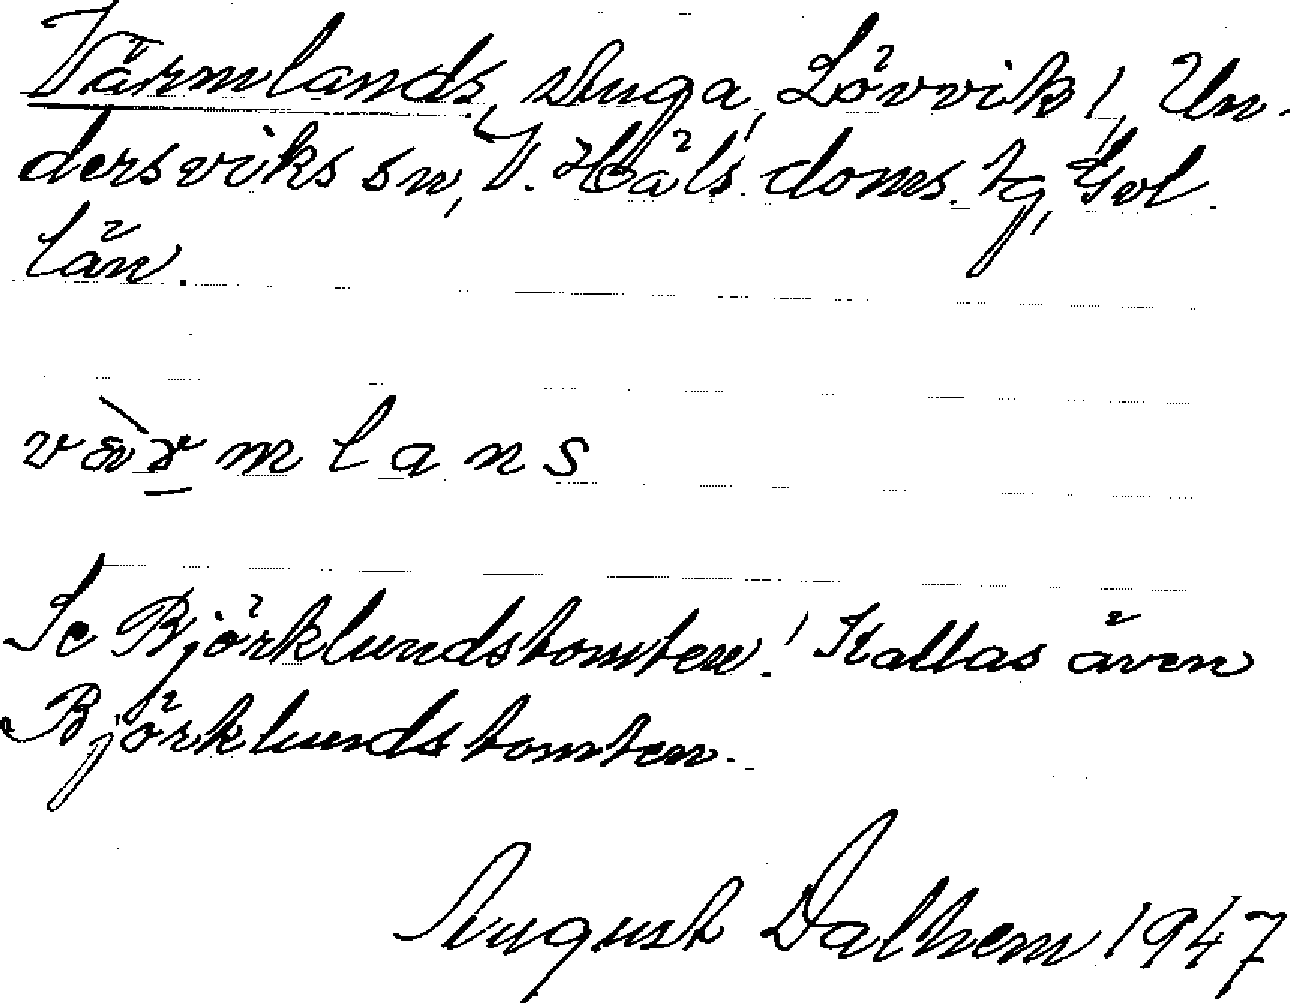 Värmlands, stuga, Lövvik 1, Un-
dersviks sn, V. Häls. doms. tg, Gvl.
län.
vä̀r̲mlans
Se Björklundstomten! Kallas även
Björklundstomten.
August Dalhem 1947